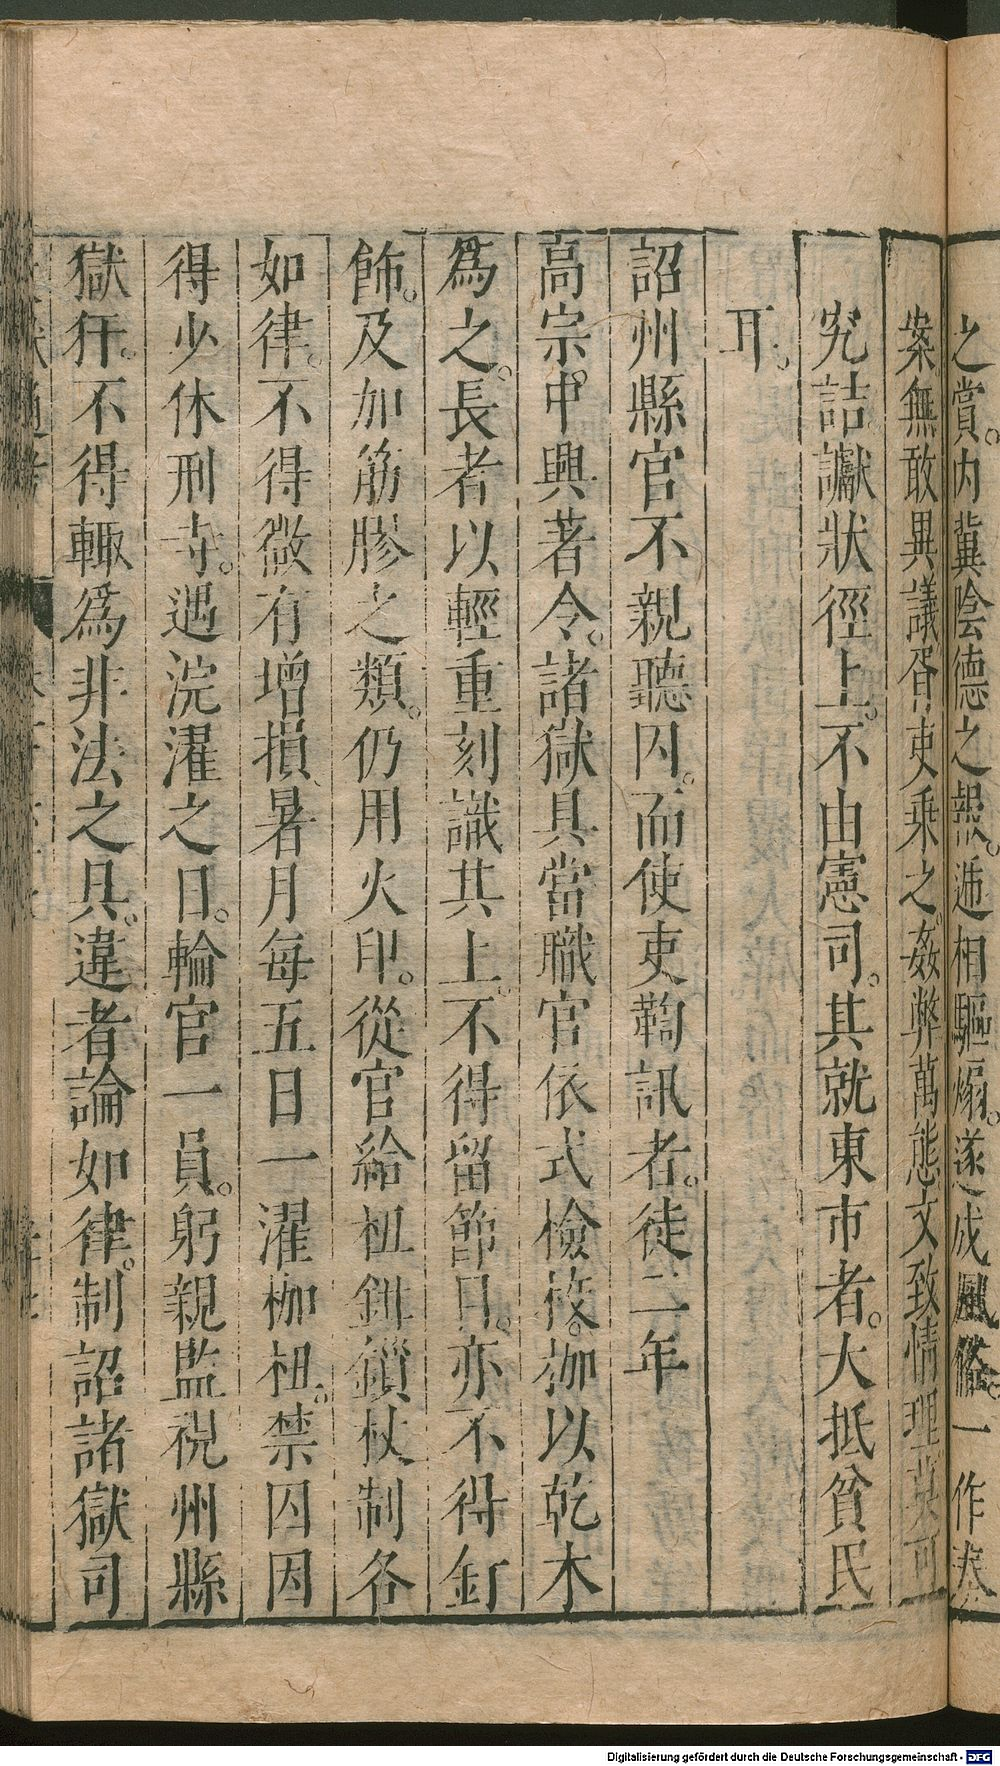 之賞。内冀陰德之報。遞相驅煽。遂成風俗。一作奏
案無敢異議。胥吏乘之。姦弊萬態文致情理莫可
究詰讞狀徑上。不由憲司。其就東市者。大抵貧民
耳。
詔州縣官不親聽囚。而使吏鞫訊者。徒二年
高宗。中興著令。諸獄具當職官依式檢校。枷以乾木
爲之。長者以輕重刻識其上。不得留節目。亦不得釘
飾。及加筋膠之類。仍用火印。從官給杻鉗鎖杖制各
如律。不得微有增損、暑月每五日一濯枷杻。禁囚因
得少休刑寺。遇浣濯之日。輪官一員。躬親監視州縣
獄犴。不得輒爲非法之具。違者論如律。制詔諸獄司
Digitalisierung gefördert durch die Deutsche Forschungsgemeinschaft - DFG